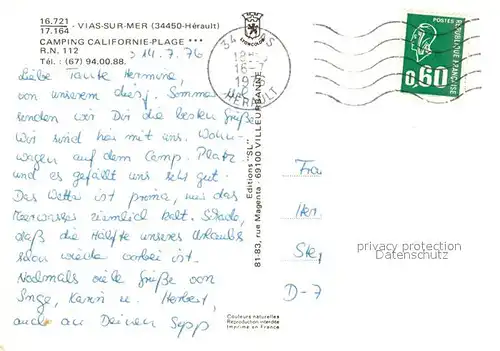 16.721
17.164 - VIAS-SUR-MER (34450-Hérault)
CAMPING CALIFORNIE-PLAGE ***
R.N. 112
Tél. : (67) 94.00.88.
14.7.76
Liebe Tante Hermine
von unserem diesj. Sommer
senden wir Dir die besten Grüße
Wir sind hier mit uns. Wohn-
wagen auf dem Camp. Platz
und es gefällt uns sehr gut.
Das Wetter ist prima, nur das
Meerwasser ziemlich kalt. Schade,
daß die Hälfte unseres Urlaubs
schon wieder vorbei ist.
Nochmals viele Grüße von
Inge, Karin u. Herbert,
auch an Deinen Sepp
LYONCOLOR
34 VIAS
HERAULT
POSTES
0,60
REPUBLIQUE FRANÇAISE
Editions "SL"
81-83, rue Magenta - 69100 VILLEURBANNE
Fra
Her
Ste
D-7
privacy protection
Datenschutz
Couleurs naturelles
Reproduction interdite
Imprimé en France